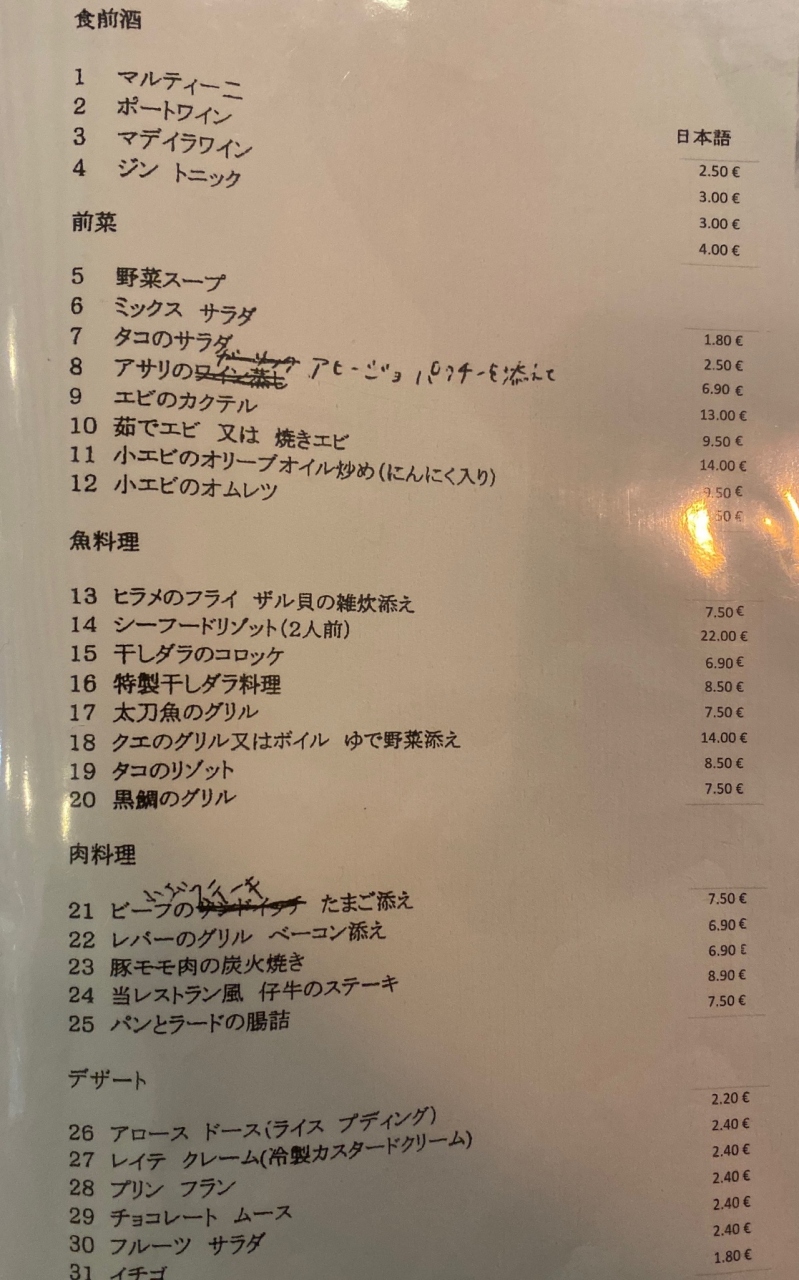 食前酒
1 マルティーニ
2 ポートワイン
3 マデイラワイン
4 ジン トニック
日本語
2.50 €
3.00 €
3.00 €
4.00 €
前菜
5 野菜スープ
6 ミックス サラダ
7 タコのサラダ
ガーリック
8 アサリのワイン蒸し アヒージョ パクチーを添えて
9 エビのカクテル
10 茹でエビ 又は 焼きエビ
11 小エビのオリーブオイル炒め(にんにく入り)
12 小エビのオムレツ
1.80 €
2.50 €
6.90 €
13.00 €
9.50 €
14.00 €
9.50 €
50 €
魚料理
13 ヒラメのフライ ザル貝の雑炊添え
14 シーフードリゾット(2人前)
15 干しダラのコロッケ
16 特製干しダラ料理
17 太刀魚のグリル
18 クエのグリル又はボイル ゆで野菜添え
19 タコのリゾット
20 黒鯛のグリル
7.50 €
22.00 €
6.90 €
8.50 €
7.50 €
14.00 €
8.50 €
7.50 €
肉料理
21 ビーフのサンドイッチ たまご添え
22 レバーのグリル ベーコン添え
23 豚モモ肉の炭火焼き
24 当レストラン風 仔牛のステーキ
25 パンとラードの腸詰
7.50 €
6.90 €
6.90 £
8.90 €
7.50 €
デザート
26 アロース ドース(ライス プディング)
27 レイテ クレーム(冷製カスタードクリーム)
28 プリン フラン
29 チョコレート ムース
30 フルーツ サラダ
31 イチゴ
2.20 €
2.40 €
2.40 €
2.40 €
2.40 €
2.40 €
1.80 €